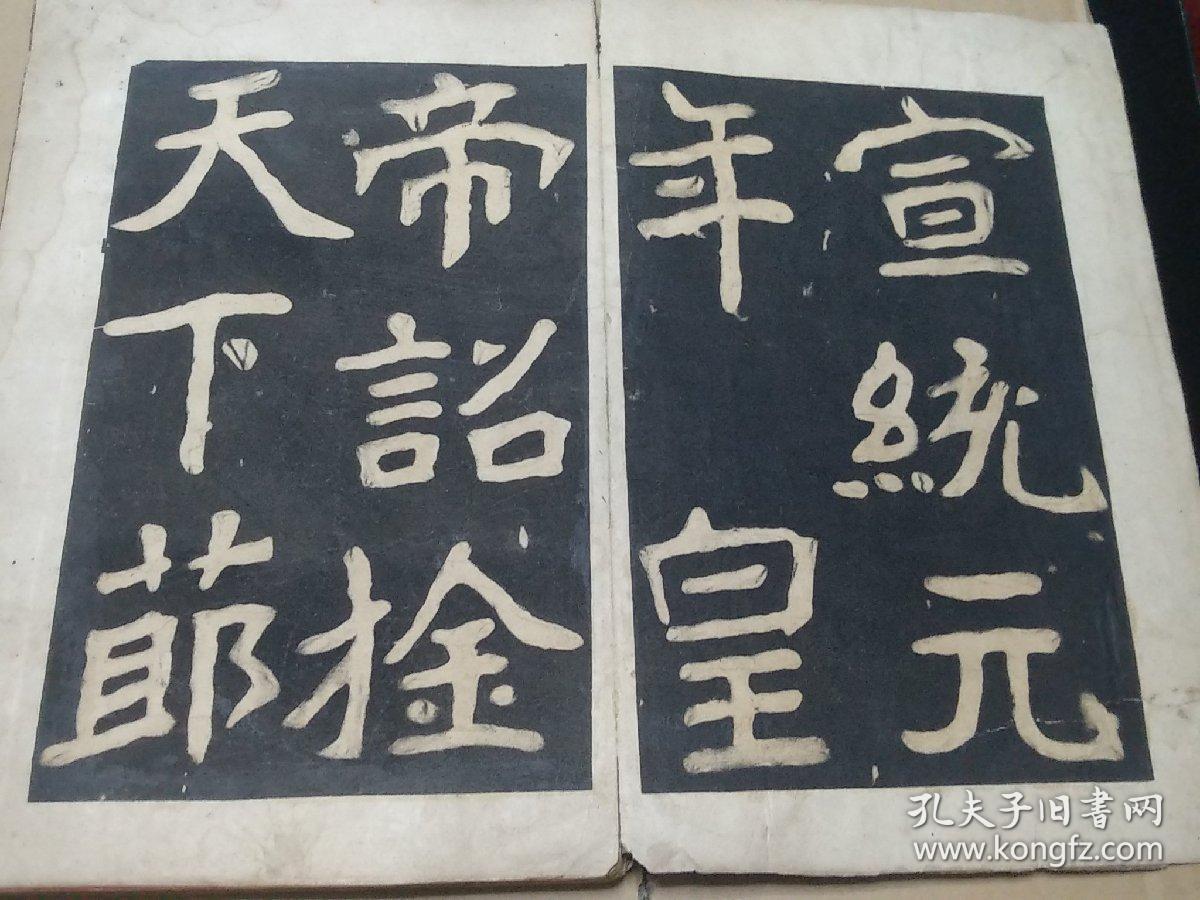 宣統元
年皇
帝詔捦
天下莭
孔夫子旧書网
www.kongfz.com